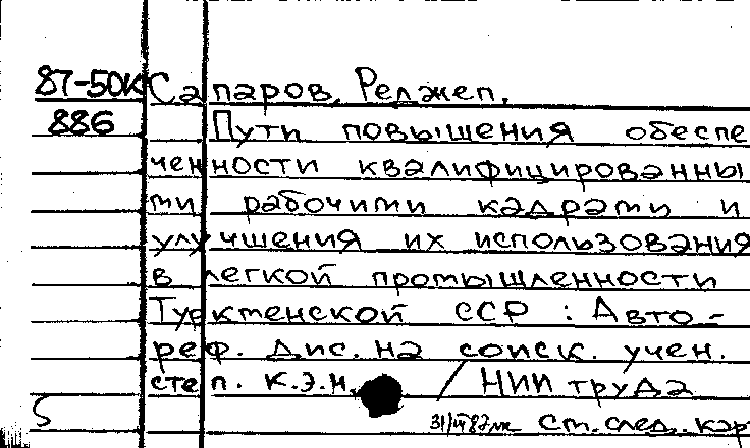 87-50к Сапаров, Реджеп.
886 Пути повышения обеспе
ченности квалифицированны
ми рабочими кадрами и
улучшения их использования
в легкой промышленности
Туркменской ССР : Авто-
реф. дис. на соиск. учен.
степ. к.э.н. / НИИ труда
Ст. след. кар